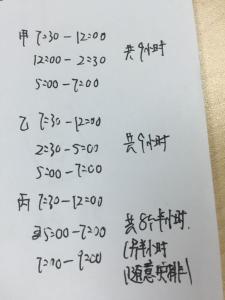 甲 7=30-12=00
12=00-2=30 共9小时
5=00-7=00
乙 7=30-12=00
2=30-5=00 共9小时
5=00-7=00
丙 7=30-12=00
5=00-7=00 共8个半小时.
7=00-9=00 (另半小时
随意安排)